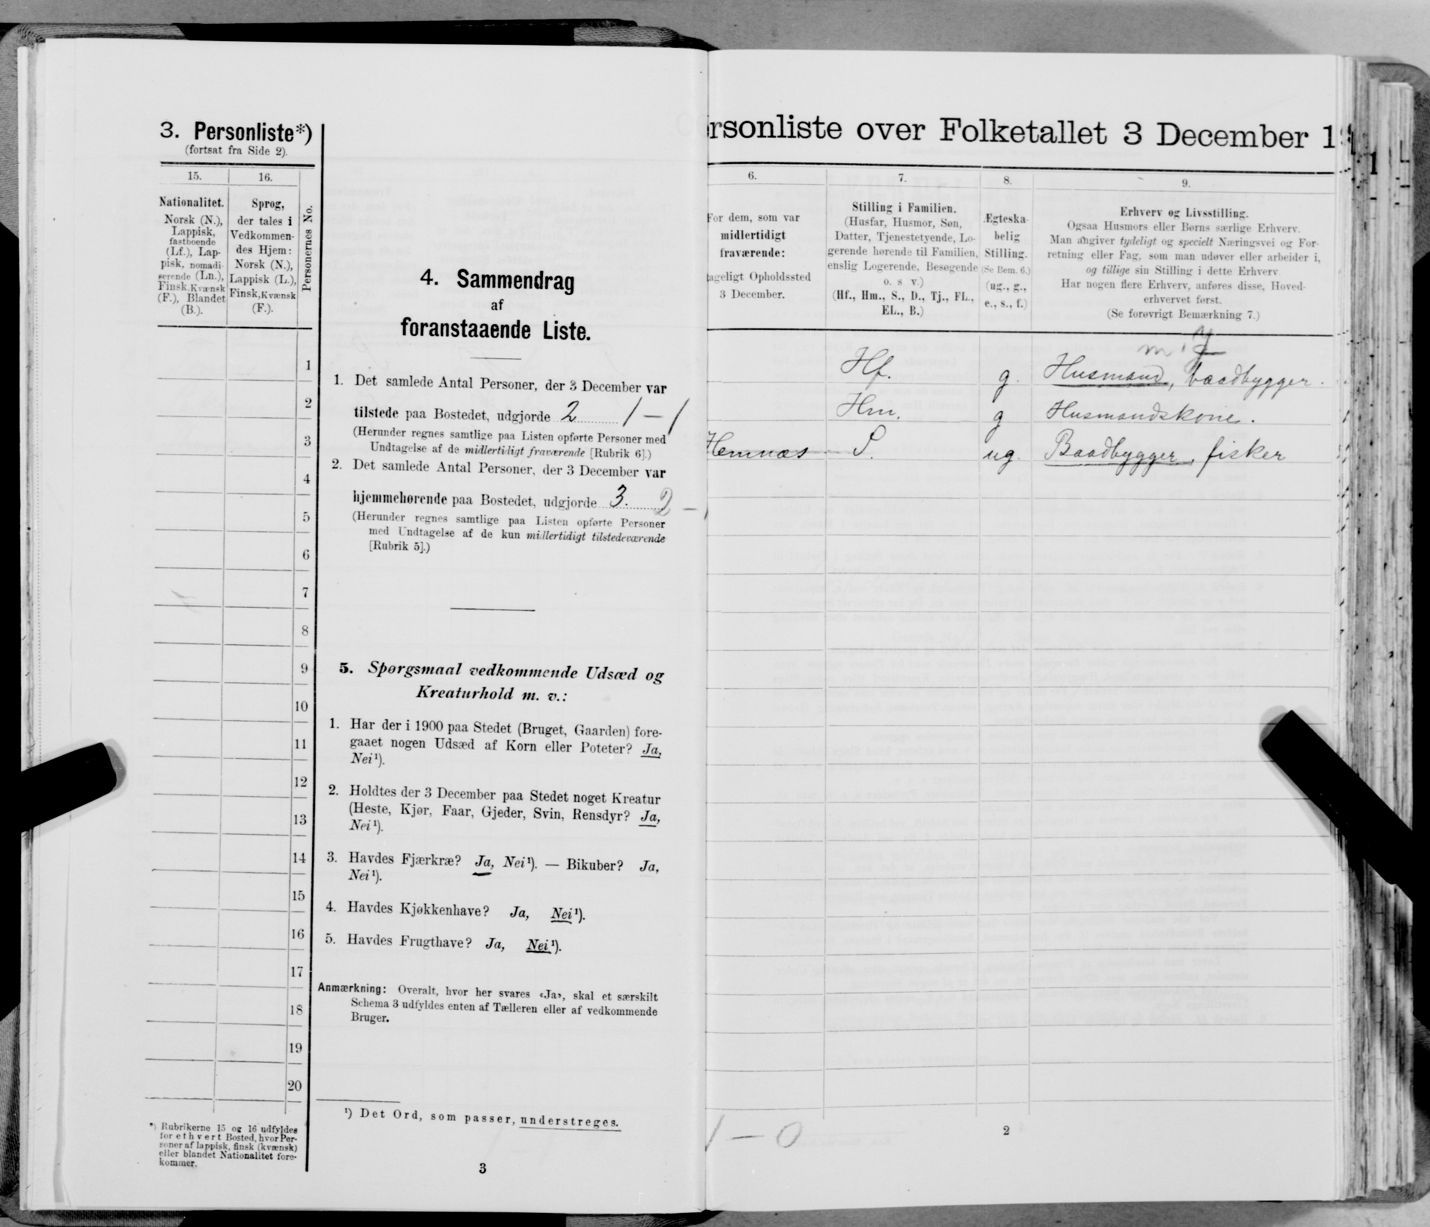 3. Personliste*)
(fortsat fra Side 2).
15.
16.
Nationalitet.
Norsk (N.),
Lappisk,
fastboende
(Lf.), Lap-
pisk, nomadi-
serende (Ln.),
Finsk, Kvænsk
(F.), Blandet
(B.).
Sprog,
der tales i
Vedkommen-
des Hjem:
Norsk (N.),
Lappisk (L.),
Finsk, Kvænsk
(F.).
Personernes No.
1
2
3
4
5
6
7
8
9
10
11
12
13
14
15
16
17
18
19
20
*) Rubrikerne 15 og 16 udfyldes
for ethvert Bosted, hvor Per-
soner af lappisk, finsk (kvænsk)
eller blandet Nationalitet fore-
kommer.
4. Sammendrag
af
foranstaaende Liste.
1. Det samlede Antal Personer, der 3 December var
tilstede paa Bostedet, udgjorde 2 1 – 1
(Herunder regnes samtlige paa Listen opførte Personer med
Undtagelse af de midlertidigt fraværende [Rubrik 6].)
2. Det samlede Antal Personer, der 3 December var
hjemmehørende paa Bostedet, udgjorde 3. 2 –
(Herunder regnes samtlige paa Listen opførte Personer
med Undtagelse af de kun midlertidigt tilstedeværende
[Rubrik 5].)
5. Spørgsmaal vedkommende Udsæd og
Kreaturhold m. v.:
1. Har der i 1900 paa Stedet (Bruget, Gaarden) fore-
gaaet nogen Udsæd af Korn eller Poteter? Ja,
Nei¹).
2. Holdtes der 3 December paa Stedet noget Kreatur
(Heste, Kjør, Faar, Gjeder, Svin, Rensdyr? Ja,
Nei¹).
3. Havdes Fjærkræ? Ja, Nei¹). — Bikuber? Ja,
Nei¹).
4. Havdes Kjøkkenhave? Ja, Nei¹).
5. Havdes Frugthave? Ja, Nei¹).
Anmærkning: Overalt, hvor her svares «Ja», skal et særskilt
Schema 3 udfyldes enten af Tælleren eller af vedkommende
Bruger.
¹) Det Ord, som passer, understreges.
3
rsonliste over Folketallet 3 December 1
6.
7.
8.
9.
For dem, som var
midlertidigt
fraværende:
ageligt Opholdssted
3 December.
Stilling i Familien.
(Husfar, Husmor, Søn,
Datter, Tjenestetyende, Lo-
gerende hørende til Familien,
enslig Logerende, Besøgende
o. s v.)
(Hf., Hm., S., D., Tj., FL.,
EL., B.)
Ægteska-
belig
Stilling.
(Se Bem. 6.)
(ug., g.,
e., s., f.)
Erhverv og Livsstilling.
Ogsaa Husmors eller Børns særlige Erhverv.
Man angiver tydeligt og specielt Næringsvei og For-
retning eller Fag, som man udøver eller arbeider i,
og tillige sin Stilling i dette Erhverv
Har nogen flere Erhverv, anføres disse, Hoved-
erhvervet først.
(Se forøvrigt Bemærkning 7.)
Hf. g. Husmand, baadbygger.
Hm. g Husmandskone.
Hemnæs S. ug. Baadbygger, fisker
1 – 0
2